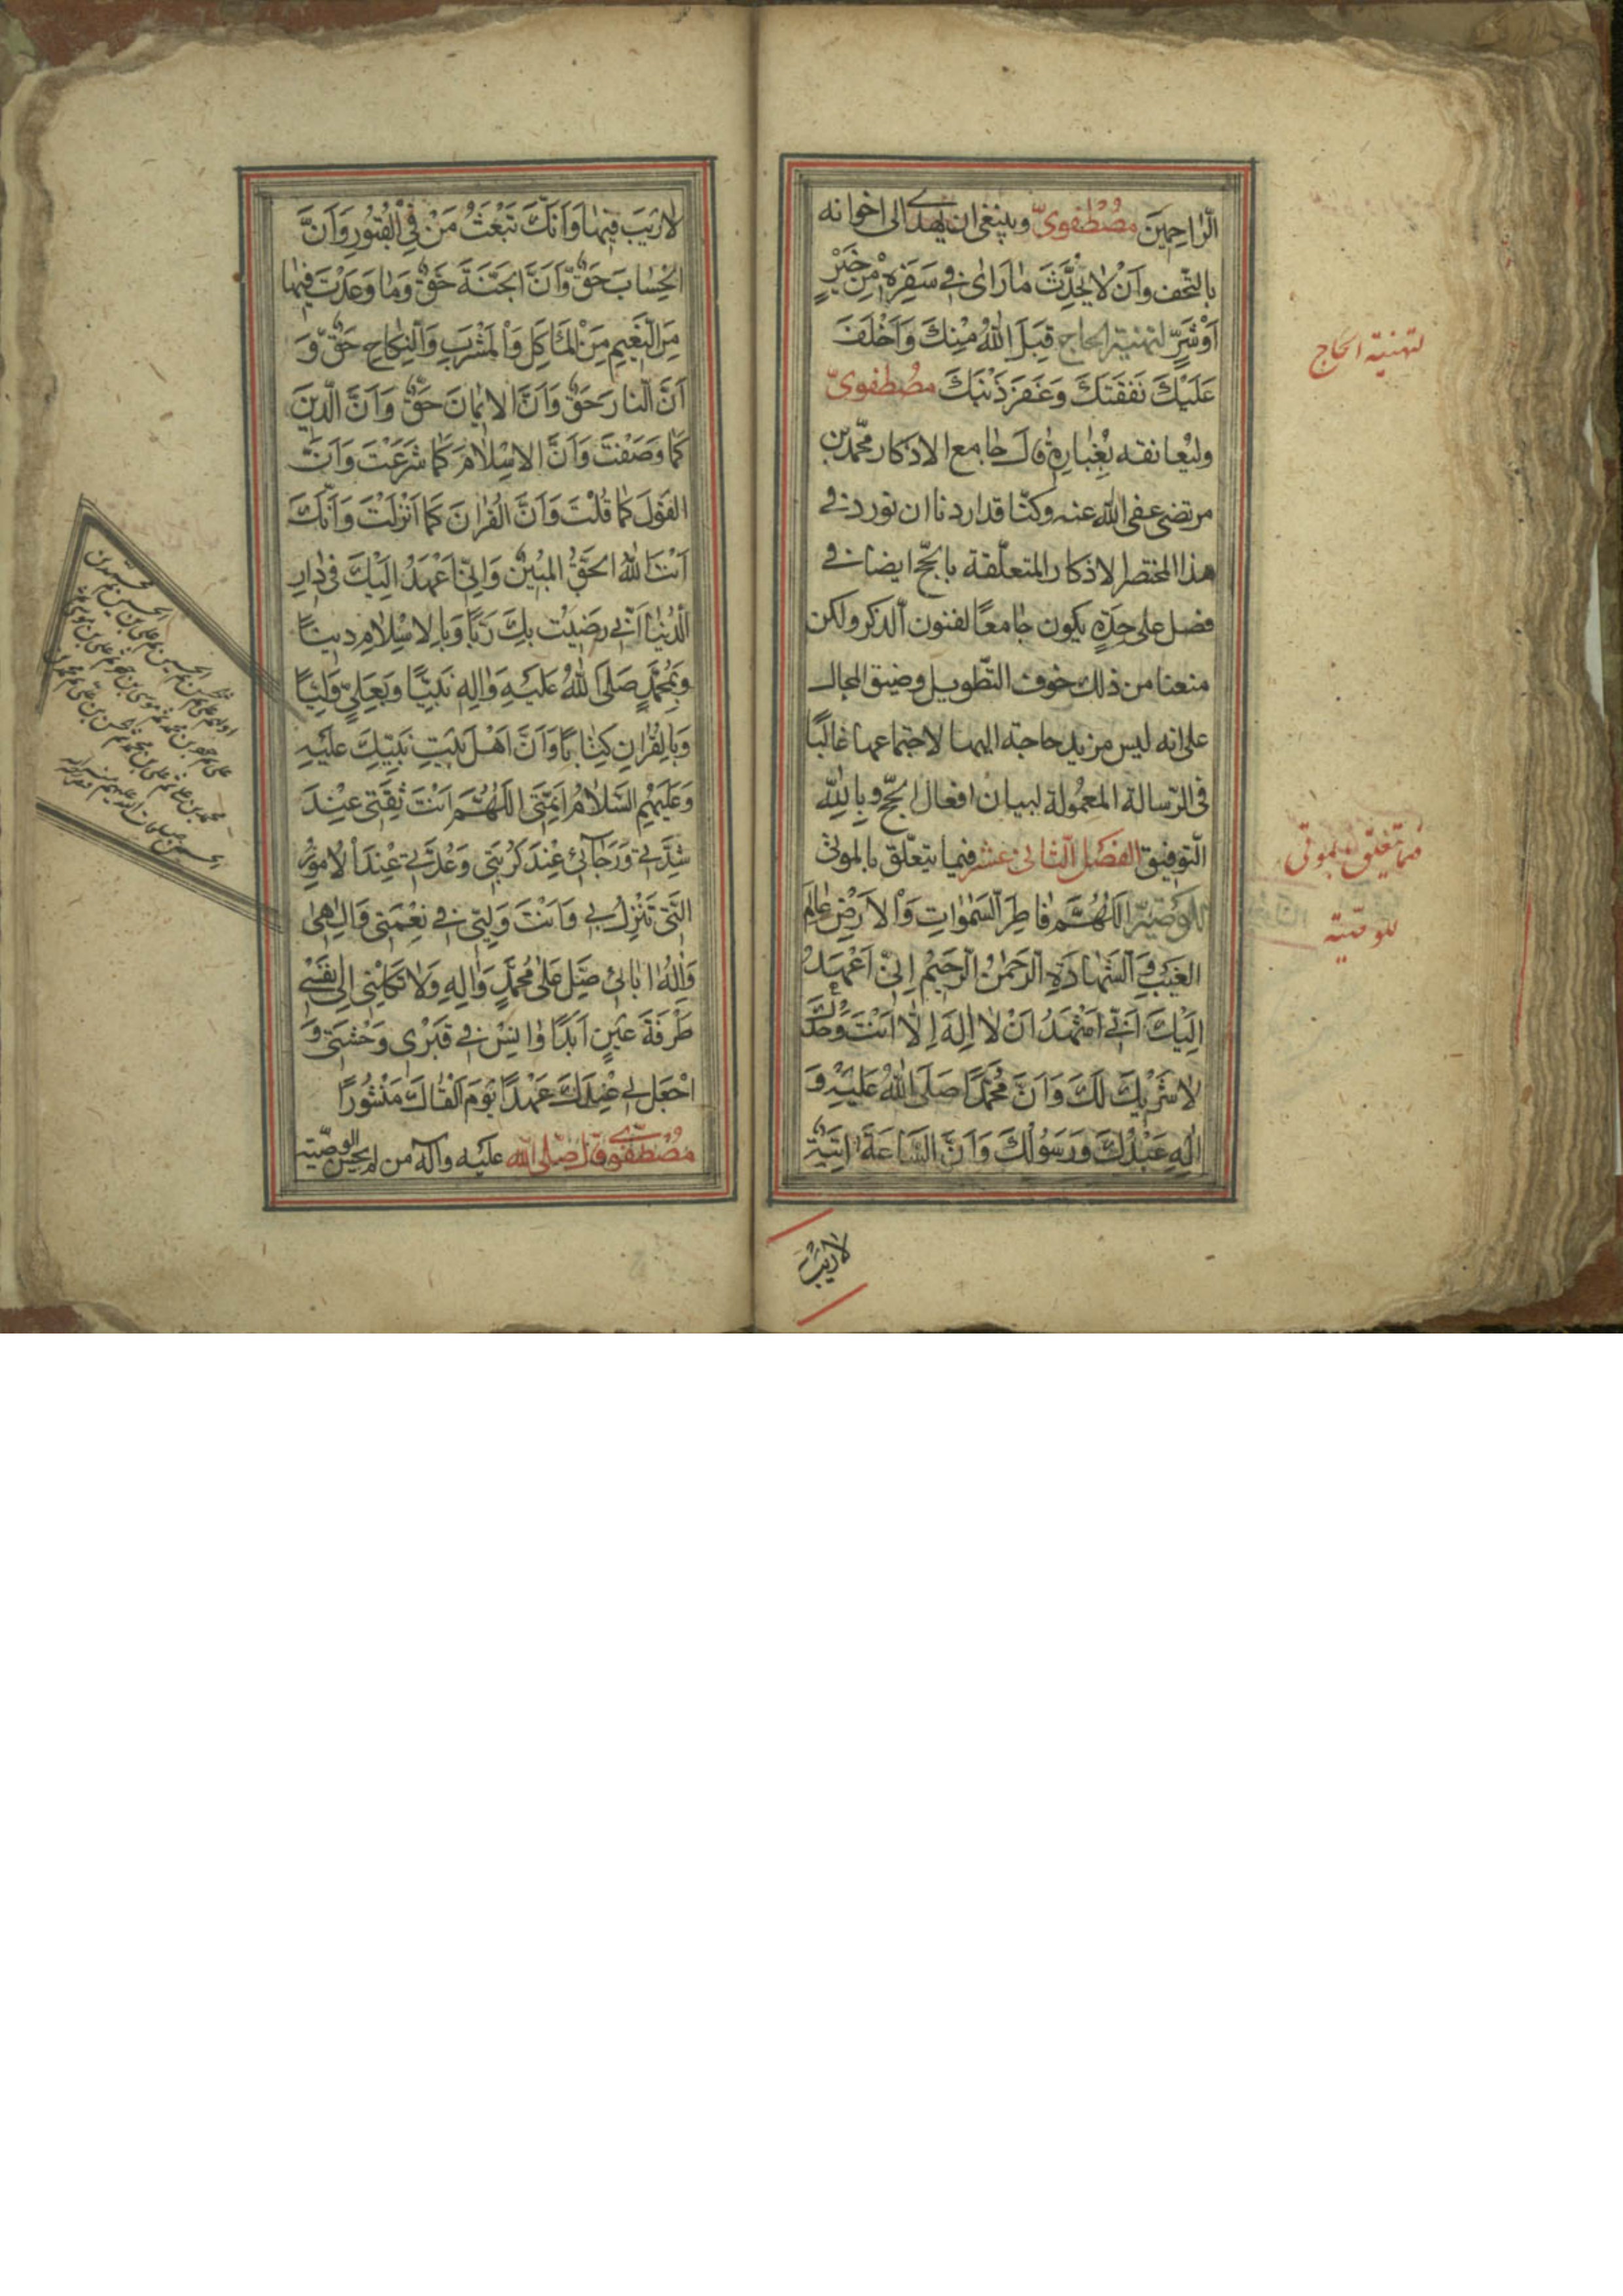 الرَّاحِمينَ مُصْطَفَوِيٌّ وينبغى ان يهدى الى اخوانه
بالتّحف وَاَنْ لاٰ يُحَدِّثَ مٰا رَاٰى فى سَفَرِهِ مِنْ خَيْرٍ
اَوْ شَرٍّ لتهنية الحاج قَبِلَ اللهُ مِنْكَ وَاَخْلَفَ
عَلَيْكَ نَفَقَتَكَ وَغَفَرَ ذَنْبَكَ مُصْطَفوىّ
وليُعانقه بِغُبارِهِ قال جٰامع الاذكار محمّد بن
مرتضى عفى الله عنه وكنّا قد اردنا ان نورد فى
هذا المختصر الاذكار المتعلّقة بالحجّ ايضا فى
فصل على حِدَةٍ يكون جٰامعًا لفنون الذكر ولكن
منعنا من ذلك خوف التّطويل وضيق المجال
على انه ليس مزيد حاجة اليها لاجتماعها غالبًا
فى الرّسالة المعمولة لبيان افعال الحجّ وبالله
التّوفيق الفصل الثانى عشر فيما يتعلّق بالموتى
للوصيّة اَللّٰهُمَّ فٰاطِرَ السَّمٰوٰاتِ وَالْاَرْضِ عٰالِمَ
الغَيْبِ وَالشَّهٰادَةِ الرَّحمٰنُ الرَّحيمُ اِنّى اَعْهَدُ
اِلَيْكَ اَنّى اَشْهَدُ اَنْ لاٰ اِلٰهَ اِلّٰا اَنْتَ وَحْدَكَ
لاٰ شَرِيْكَ لَكَ وَاَنَّ مُحَمَّدًا صَلَّى اللهُ عَلَيْهِ وَ
اٰلِهِ عَبْدُكَ وَرَسُولُكَ وَاَنَّ السّٰاعَةَ اٰتِيَةٌ
لاٰريْبَ
لتهنية الحاج
فيما يتعلّق بالموتى
للوصيّة
لاٰ رَيْبَ فيهٰا وَاَنَّكَ تَبْعَثُ مَنْ فِى الْقُبُورِ وَاَنَّ
الحِسٰابَ حَقٌّ وَاَنَّ الجَنَّةَ حَقٌّ وَمٰا وَعَدْتَ فيهٰا
مِنَ النَّعيمِ مِنَ المَأْكَلِ وَالْمَشْرَبِ وَالنِّكاحِ حَقٌّ وَ
اَنَّ النّارَ حَقٌّ وَاَنَّ الايمٰانَ حَقٌّ وَاَنَّ الدّينَ
كَمٰا وَصَفْتَ وَاَنَّ الاِسْلاٰمَ كَمٰا شَرَعْتَ وَاَنَّ
القَوْلَ كَمٰا قُلْتَ وَاَنَّ القُرْاٰنَ كَمٰا اَنْزَلْتَ وَاَنَّكَ
اَنْتَ اللهُ الحَقُّ المُبينُ وَاِنّى اَعْهَدُ اِلَيْكَ فى دٰارِ
الدُّنْيٰا اَنّى رَضيتُ بِكَ رَبًّا وَبِالاِسْلاٰمِ دينًا
وَبِمُحَمَّدٍ صَلَّى اللهُ عَلَيْهِ وَاٰلِهِ نَبِيًّا وَبِعَلِيٍّ وَلِيًّا
وَبِالقُرْاٰنِ كِتٰابًا وَاَنَّ اَهْلَ بَيْتِ نَبِيِّكَ عَلَيْهِ
وَعَلَيْهِمُ السَّلاٰمُ اَئِمَّتى اللّٰهُمَّ اَنْتَ ثِقَتى عِنْدَ
شِدَّتى وَرَجٰائى عِنْدَ كُرْبَتى وَعُدَّتى عِنْدَ الاُمُورِ
الَّتى تَنْزِلُ بى وَاَنْتَ وَلِيّى فى نِعْمَتى وَاِلٰهى
وَاِلٰهُ اٰبٰائى صَلِّ عَلٰى مُحَمَّدٍ وَاٰلِهِ وَلاٰ تَكِلْنى اِلٰى نَفْسى
طَرْفَةَ عَيْنٍ اَبَدًا وَاٰنِسْ فى قَبْرى وَحْشَتى وَ
اجْعَلْ لى عِنْدَكَ عَهْدًا يَوْمَ اَلْقٰاكَ مَنْشُورًا
مُصْطَفَوىّ قال صَلّى الله عليه وآله من لم يحسن الوصيّة